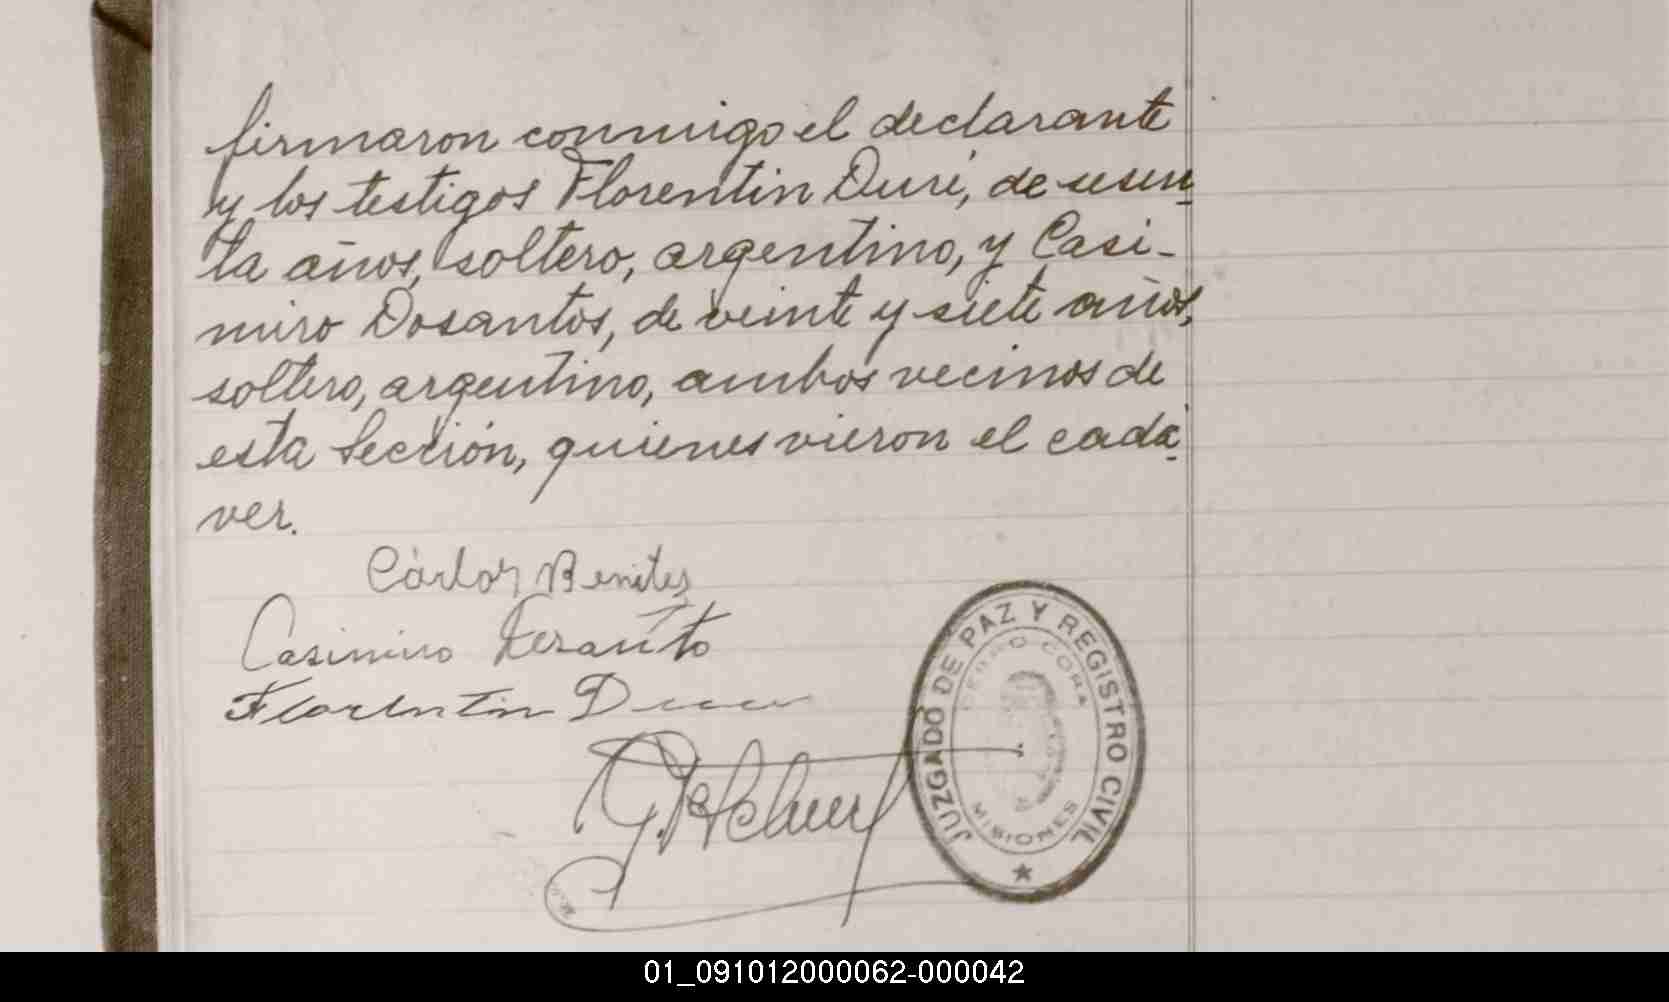 firmaron conmigo el declarante
y los testigos Florentin Duré, de sesen-
ta años, soltero, argentino, y Casi-
miro Dosantos, de veinte y siete años,
soltero, argentino, ambos vecinos de
esta Sección, quienes vieron el cadá-
ver.
Cárlos Benites
Casimiro
Florentin
JUZGADO DE PAZ Y REGISTRO CIVIL
CERRO CORA
MISIONES
01_091012000062-000042